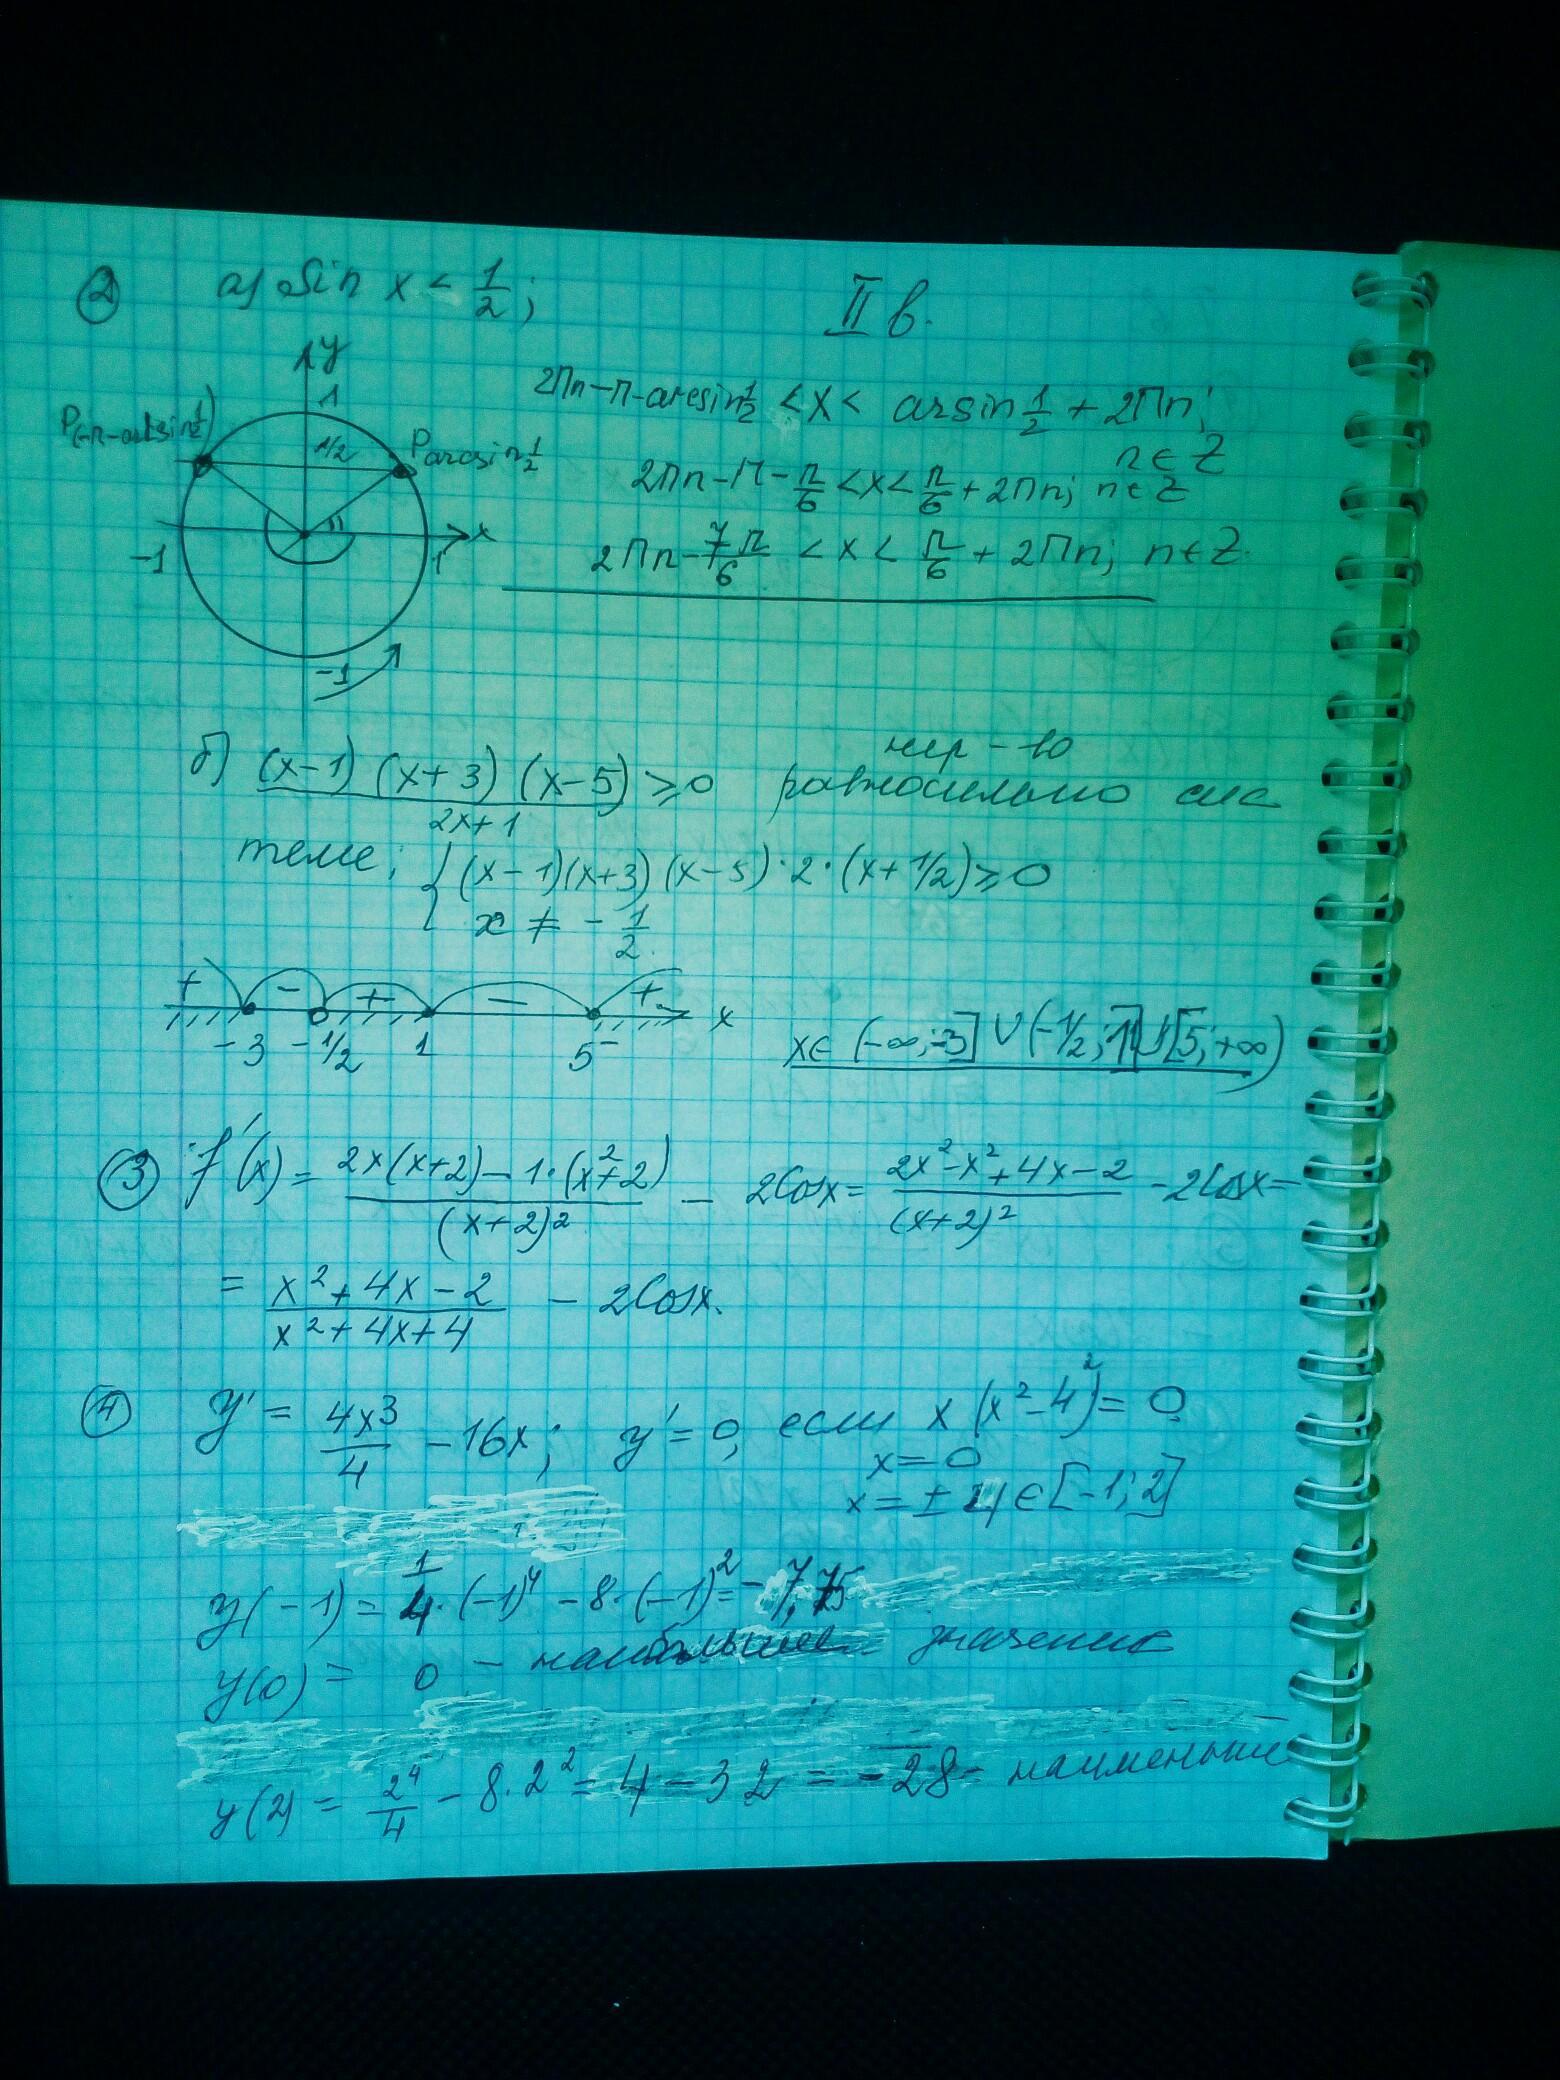 ② а) Sin x < 1/2;
II в.
y
1
P(-π-arcsin 1/2)
1/2
P arcsin 1/2
-1
1
x
-1
2πn-π-arcsin 1/2 < x < arsin 1/2 + 2πn;
n ∈ Z
2πn-π-π/6 < x < π/6 + 2πn; n∈Z
2πn-7π/6 < x < π/6 + 2πn; n∈Z.
б) (x-1)(x+3)(x-5)/(2x+1) ≥ 0 нер-во равносильно сис
теме; { (x-1)(x+3)(x-5)·2·(x+1/2) ≥ 0
x ≠ -1/2.
+ - + - + x
-3 -1/2 1 5
x∈ (-∞;-3] ∪ (-1/2; 1] ∪ [5; +∞)
③ f'(x) = (2x(x+2) - 1·(x²+2))/(x+2)² - 2Cosx = (2x²-x²+4x-2)/(x+2)² - 2Cosx =
= (x²+4x-2)/(x²+4x+4) - 2Cosx.
④ y' = 4x³/4 - 16x; y' = 0, если x(x²-4²) = 0
x = 0
x = ±4 ∈ [-1; 2]
y(-1) = 1/4·(-1)⁴ - 8·(-1)² = -7,75
y(0) = 0 - наибольшее значение
y(2) = 2⁴/4 - 8·2² = 4 - 32 = -28 - наименьше